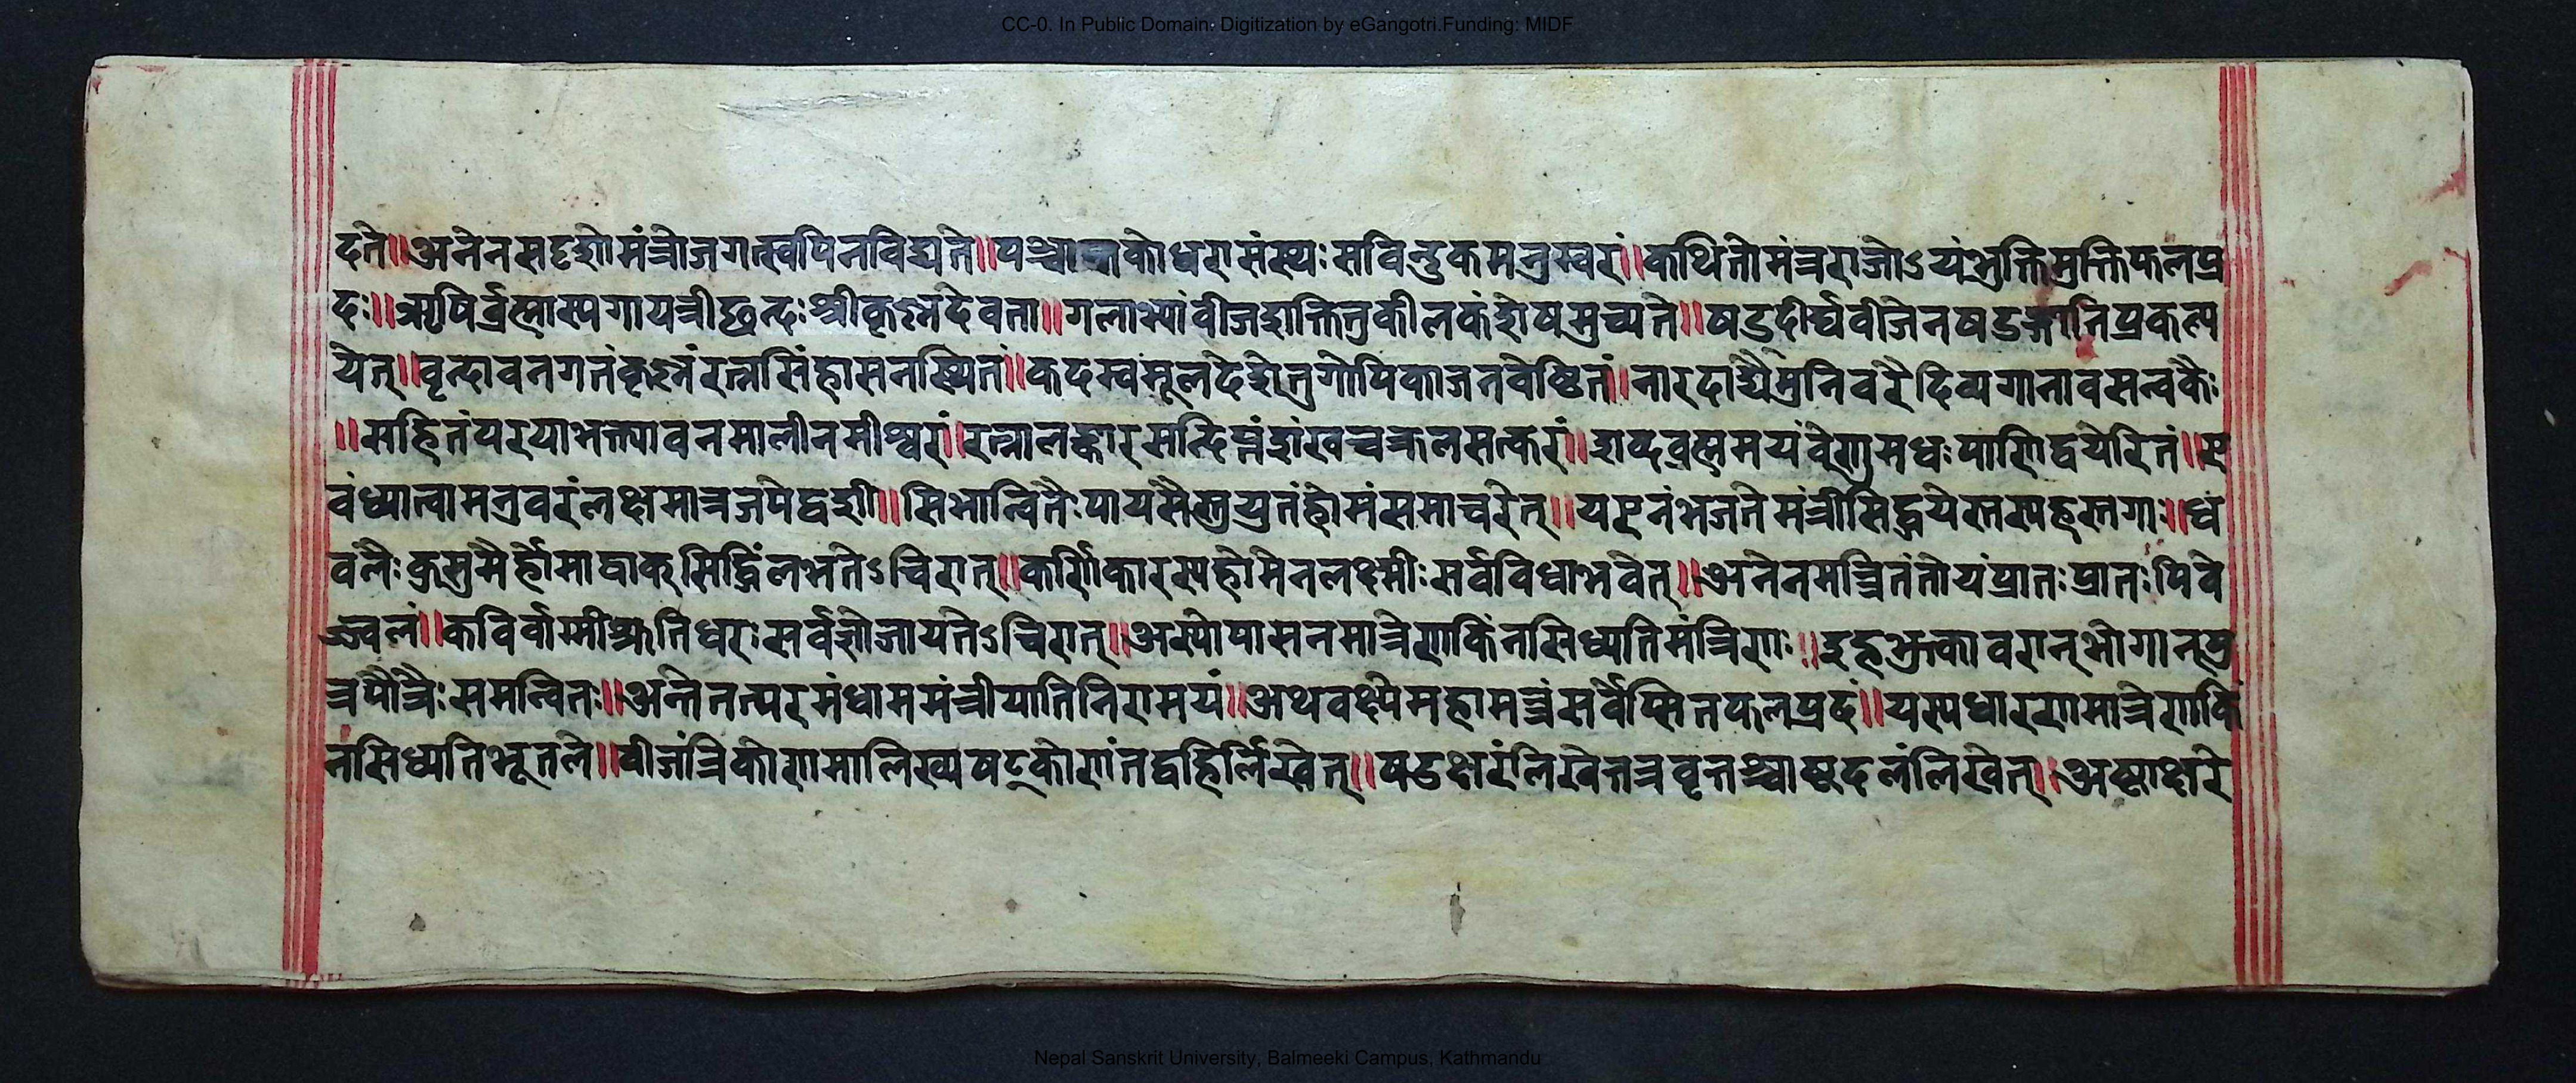 CC-0. In Public Domain. Digitization by eGangotri.Funding: MIDF
दते॥अनेनसदृशोमंत्रोजगत्स्वपिनविद्यते॥पञ्चान्तकोधरासंस्थःसविन्दुकमनुस्वरां॥कथितोमंत्रराजोऽयंभुक्तिमुक्तिफलप्र
दः॥ऋषिर्ब्रह्मास्यगायत्रीछन्दःश्रीकृष्णदेवता॥गलाभ्यांवीजशक्तितुकीलकंशेषमुच्यते॥षडदीर्घवीजेनषडङ्गानिप्रकल्प
येत्॥वृन्दावनगतंकृष्णंरत्नसिंहासनस्थितं॥कदम्वमूलदेशेतुगोपिकाजनवेष्टितं॥नारदाद्यैमुनिवरैदिव्यगानावसत्वकैः
॥सहितंपरयाभक्त्यावनमालीनमीश्वरां॥रत्नालङ्कारसन्दिप्तंशंखचक्रलसत्करां॥शव्दव्रह्ममयंवेणुमधःपाणिद्वयेरितं॥ए
वंध्यात्वामनुवरंलक्षमात्रजपेद्वशी॥सिभान्वितैःपायसैस्तुयुतंहोमंसमाचरेत्॥यएनंभजतेमंत्रीसिद्धयेस्तस्यहस्तगाः॥धं
वलैःकुसुमैर्होमाद्वाक्सिद्धिंलभतेऽचिरात्॥कर्णिकारस्यहोमेनलक्ष्मीःसर्वविधाभवेत्॥अनेनमन्त्रितंतोयंप्रातःप्रातःपिवे
ज्ज्वलं॥कविर्वाग्मीश्रुतिधरःसर्वज्ञोजायतेऽचिरात्॥अस्योपासनमात्रेणकिंनसिध्यतिमंत्रिणः॥इहभुक्तावरान्भोगान्पु
त्रपौत्रैःसमन्वितः॥अन्तेतत्परमंधाममंत्रीयातिनिरामयं॥अथवक्ष्येमहामन्त्रंसर्वेप्सितफलप्रदं॥यस्यधारणमात्रेणकिं
नसिध्यतिभूतले॥वीजंत्रिकोणमालिख्यषट्कोणंतद्वहिर्लिखेत्॥षडक्षरंलिखेत्तत्रवृत्तञ्चाष्टदलंलिखेत्॥अष्टाक्षरे
Nepal Sanskrit University, Balmeeki Campus, Kathmandu